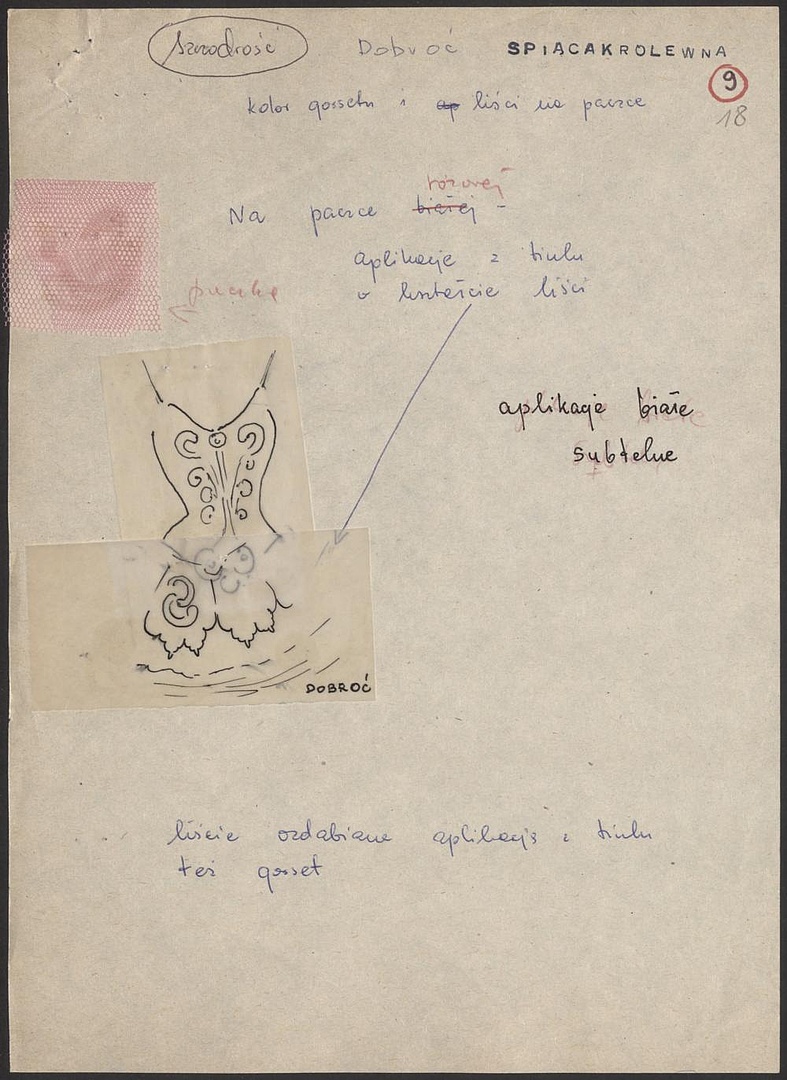 Szczodrość Dobroć SPIĄCAKRÓLEWNA
9
18
kolor gorsetu i ap liści na paczce
różowej
Na paczce białej -
aplikacje z tiulu
w kształcie liści
paczka
aplikacje białe
subtelne
DOBROĆ
liście ozdabiane aplikacją z tiulu
też gorset